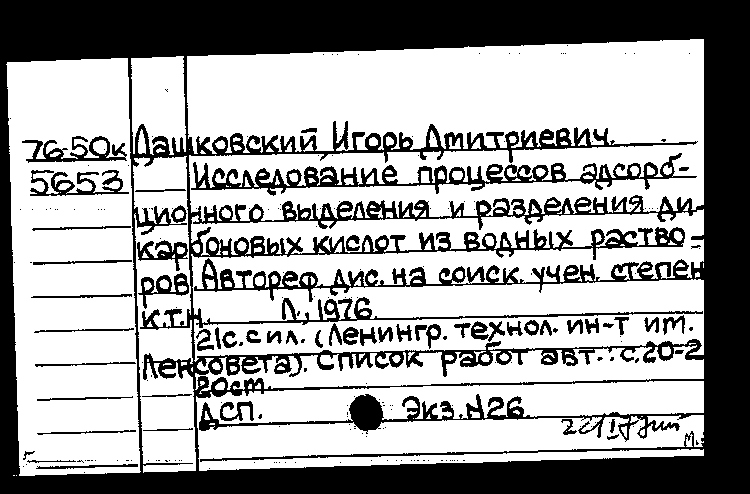 76-50к Дашковский Игорь Дмитриевич.
5653 Исследование процессов адсорб-
ционного выделения и разделения ди-
карбоновых кислот из водных раство-
ров. Автореф. дис. на соиск. учен. степен
к.т.н. Л., 1976.
21с. с ил. (Ленингр. технол. ин-т им.
Ленсовета). Список работ авт.: с. 20-2
20ст.
ДСП. Экз. №26.